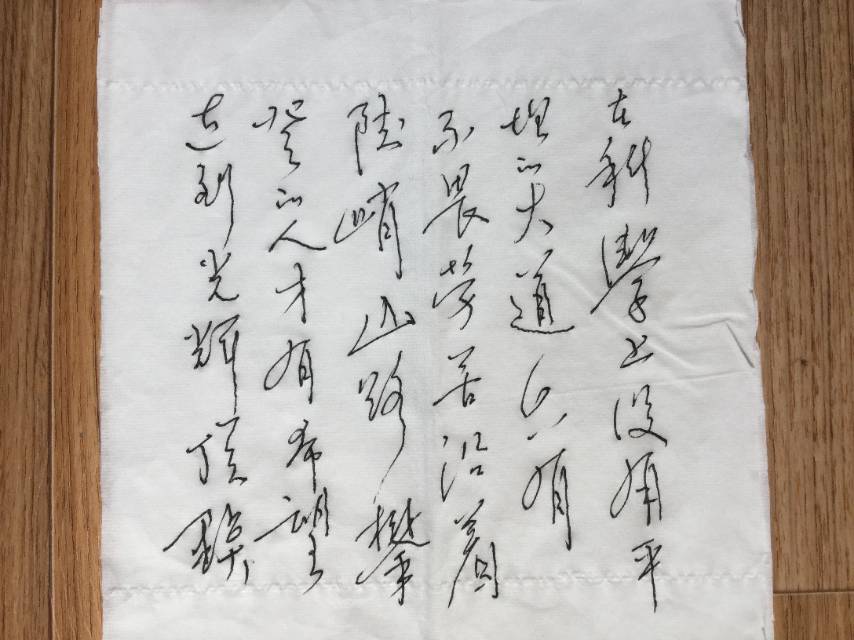 在科學上没有平
坦的大道只有
不畏勞苦沿着
陡峭山路攀
登的人才有希望
达到光輝顶點